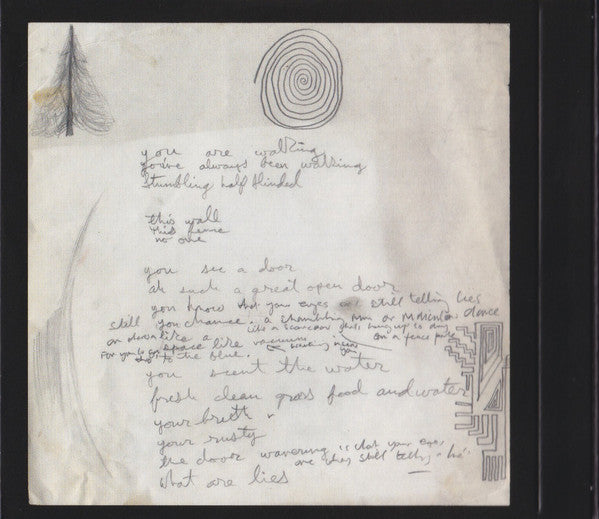 you are walking
you've always been walking
stumbling half blinded
this wall
this fence
no one
you see a door
such a great open door
you know that your eyes are still telling lies
still you chance. a shambling man or dance
or down like a like a scarecrow that's hung up to dry on a fence
For you to space like vacuums
to the blue.
you scent the water
fresh clean grass food and water
your breath
your rusty
the door wavering is that your eyes
are they still telling lies
what are lies